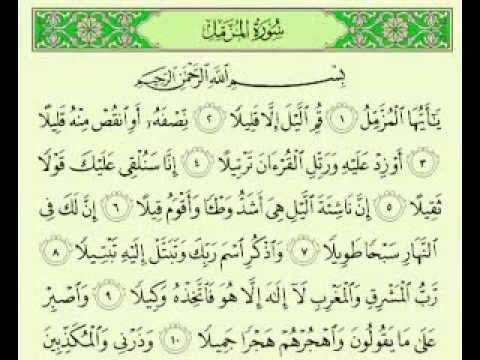 سُورَةُ المُزَّمِّلِ
بِسْمِ اللَّهِ الرَّحْمَٰنِ الرَّحِيمِ
يَٰٓأَيُّهَا ٱلْمُزَّمِّلُ ١ قُمِ ٱلَّيْلَ إِلَّا قَلِيلًا ٢ نِّصْفَهُۥٓ أَوِ ٱنقُصْ مِنْهُ قَلِيلًا
٣ أَوْ زِدْ عَلَيْهِ وَرَتِّلِ ٱلْقُرْءَانَ تَرْتِيلًا ٤ إِنَّا سَنُلْقِى عَلَيْكَ قَوْلًا
ثَقِيلًا ٥ إِنَّ نَاشِئَةَ ٱلَّيْلِ هِىَ أَشَدُّ وَطْـًٔا وَأَقْوَمُ قِيلًا ٦ إِنَّ لَكَ فِى
ٱلنَّهَارِ سَبْحًا طَوِيلًا ٧ وَٱذْكُرِ ٱسْمَ رَبِّكَ وَتَبَتَّلْ إِلَيْهِ تَبْتِيلًا ٨
رَّبُّ ٱلْمَشْرِقِ وَٱلْمَغْرِبِ لَآ إِلَٰهَ إِلَّا هُوَ فَٱتَّخِذْهُ وَكِيلًا ٩ وَٱصْبِرْ
عَلَىٰ مَا يَقُولُونَ وَٱهْجُرْهُمْ هَجْرًا جَمِيلًا ١٠ وَذَرْنِى وَٱلْمُكَذِّبِينَ